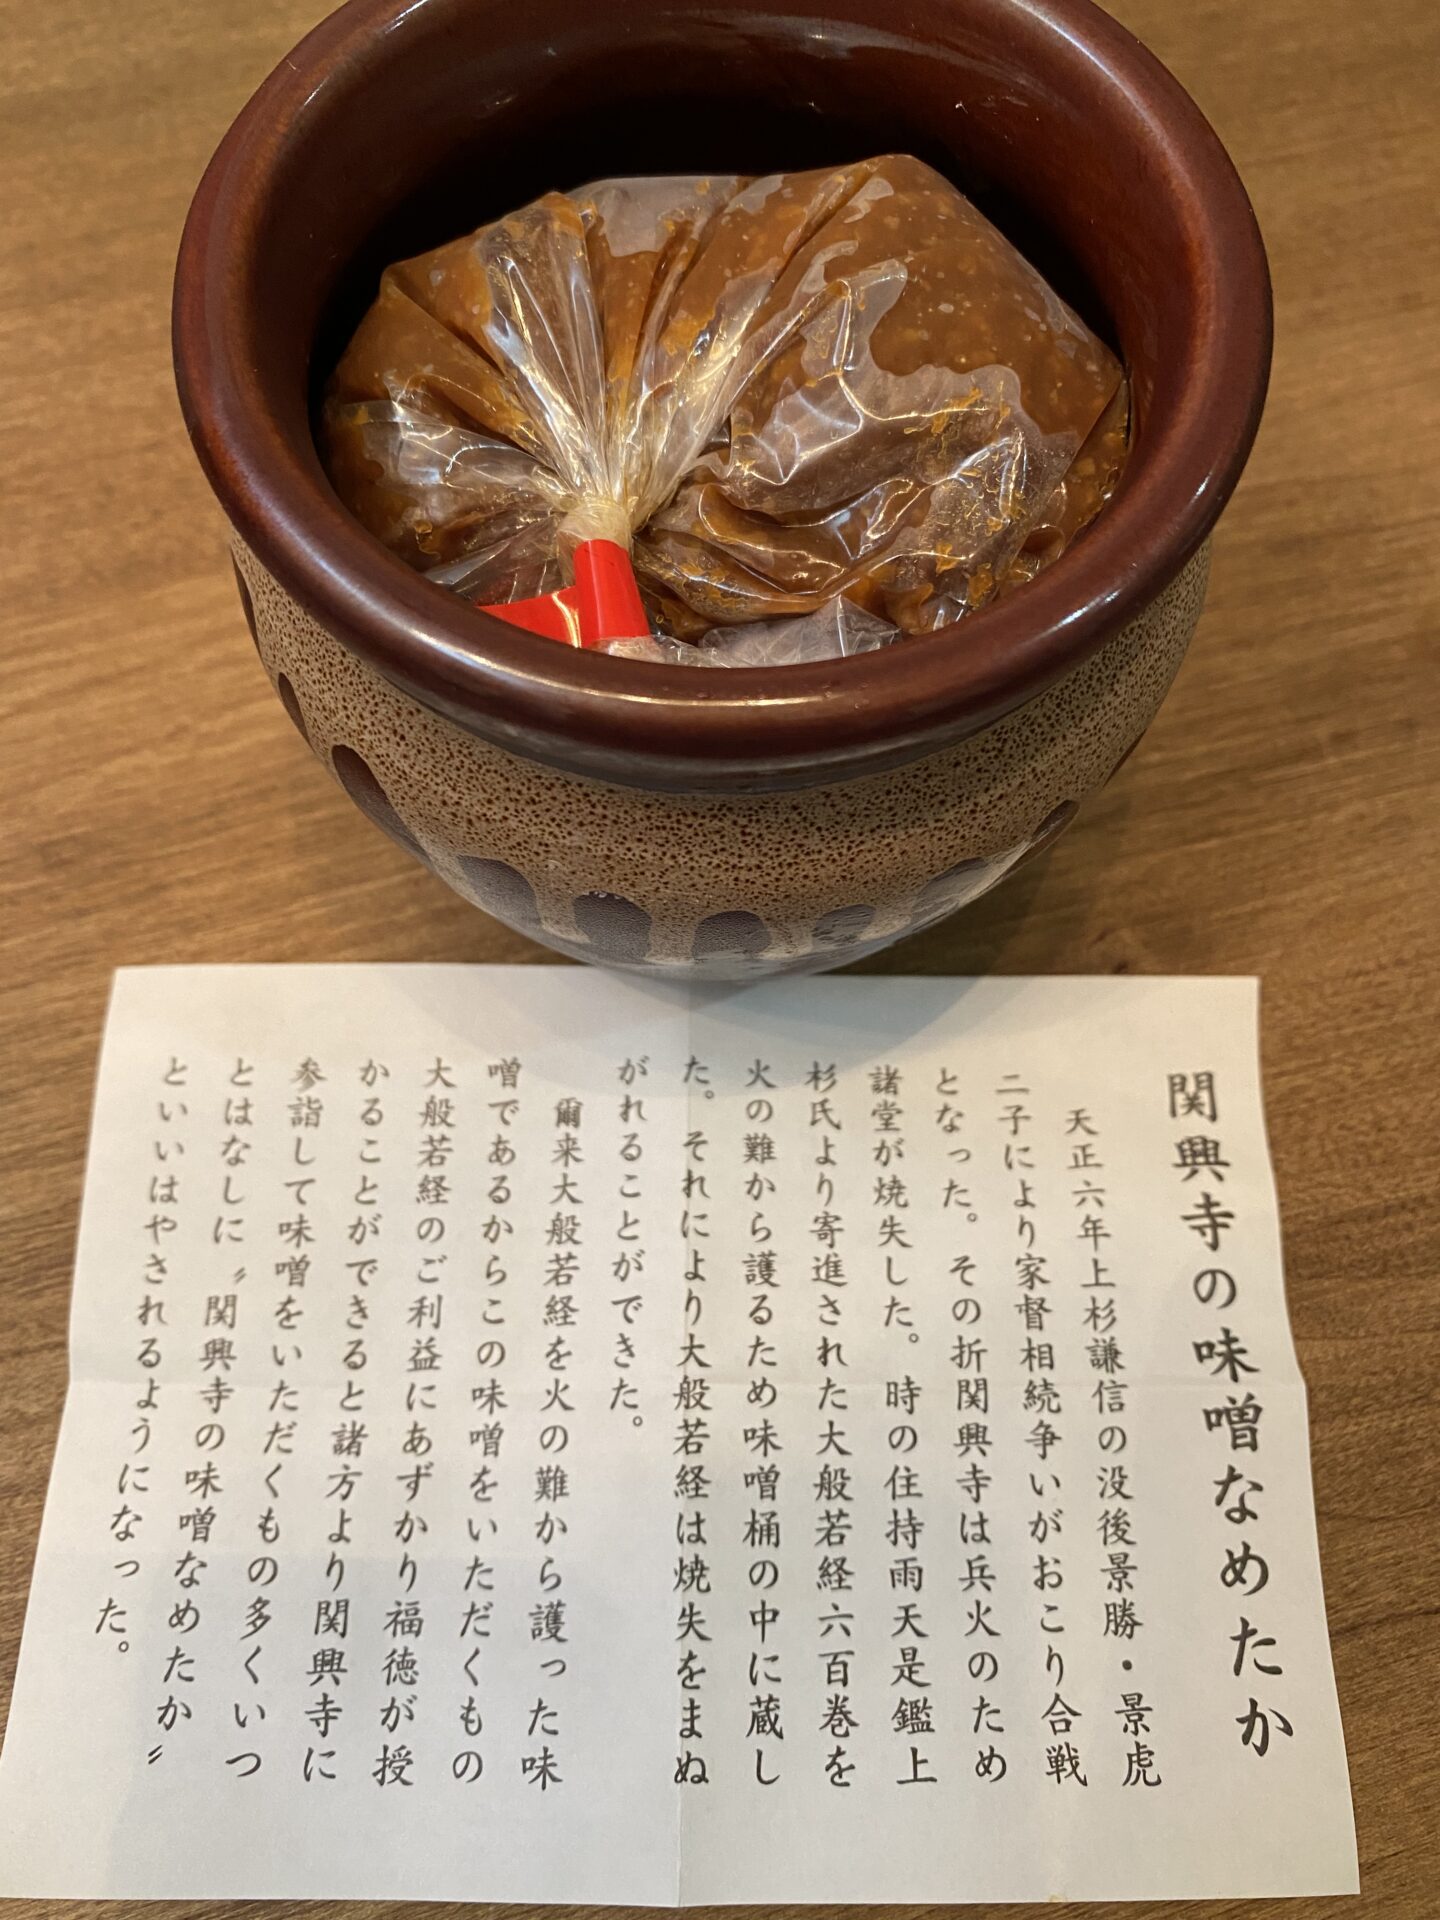 関興寺の味噌なめたか
天正六年上杉謙信の没後景勝・景虎
二子により家督相続争いがおこり合戦
となった。その折関興寺は兵火のため
諸堂が焼失した。時の住持雨天是鑑上
杉氏より寄進された大般若経六百巻を
火の難から護るため味噌桶の中に蔵し
た。それにより大般若経は焼失をまぬ
がれることができた。
爾来大般若経を火の難から護った味
噌であるからこの味噌をいただくもの
大般若経のご利益にあずかり福徳が授
かることができると諸方より関興寺に
参詣して味噌をいただくもの多くいつ
とはなしに〝関興寺の味噌なめたか〟
といいはやされるようになった。